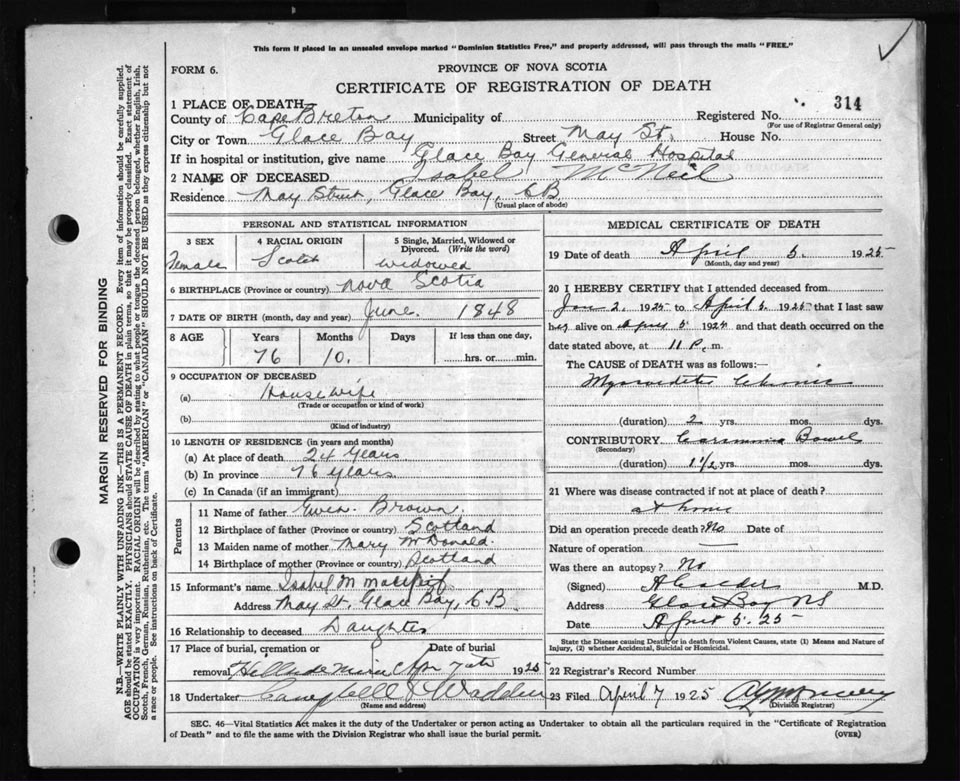 This form if placed in an unsealed envelope marked "Dominion Statistics Free," and properly addressed, will pass through the mails "FREE."
FORM 6.
PROVINCE OF NOVA SCOTIA
CERTIFICATE OF REGISTRATION OF DEATH
1 PLACE OF DEATH
County of Cape Breton Municipality of Registered No. 314
(For use of Registrar General only)
City or Town Glace Bay Street May St. House No.
If in hospital or institution, give name Glace Bay General Hospital
2 NAME OF DECEASED Isabel McNeil
Residence May Street, Glace Bay, CB
(Usual place of abode)
PERSONAL AND STATISTICAL INFORMATION
3 SEX 4 RACIAL ORIGIN 5 Single, Married, Widowed or Divorced. (Write the word)
Female Scotch widowed
6 BIRTHPLACE (Province or country) Nova Scotia
7 DATE OF BIRTH (month, day and year) June 1848
8 AGE Years Months Days If less than one day,
76 10 hrs. or min.
9 OCCUPATION OF DECEASED
(a) Housewife
(Trade or occupation or kind of work)
(b)
(Kind of industry)
10 LENGTH OF RESIDENCE (in years and months)
(a) At place of death 24 Years
(b) In province 76 Years
(c) In Canada (if an immigrant)
Parents
11 Name of father Brown
12 Birthplace of father (Province or country) Scotland
13 Maiden name of mother Mary McDonald.
14 Birthplace of mother (Province or country) Scotland
15 Informant's name Isabel M
Address May St. Glace Bay, C B
16 Relationship to deceased Daughter
17 Place of burial, cremation or removal Date of burial
Apr 7th 1925
18 Undertaker Campbell & Wadden
(Name and address)
MEDICAL CERTIFICATE OF DEATH
19 Date of death April 5. 1925
(Month, day and year)
20 I HEREBY CERTIFY that I attended deceased from
Jan 2. 1925 to April 5. 1925 that I last saw
her alive on April 5 192 and that death occurred on the
date stated above, at 11 P. m.
The CAUSE OF DEATH was as follows:
(duration) 2 yrs. mos. dys.
CONTRIBUTORY Bowel
(Secondary)
(duration) 1 1/2 yrs. mos. dys.
21 Where was disease contracted if not at place of death?
at home
Did an operation precede death? No Date of
Nature of operation —
Was there an autopsy? No
(Signed) M.D.
Address Glace Bay NS
Date April 5. 25
State the Disease causing Death, or in death from Violent Causes, state (1) Means and Nature of Injury, (2) whether Accidental, Suicidal or Homicidal.
22 Registrar's Record Number
23 Filed April 7 1925
(Division Registrar)
SEC. 46—Vital Statistics Act makes it the duty of the Undertaker or person acting as Undertaker to obtain all the particulars required in the "Certificate of Registration
of Death" and to file the same with the Division Registrar who shall issue the burial permit.
(OVER)
MARGIN RESERVED FOR BINDING
N.B.—WRITE PLAINLY WITH UNFADING INK—THIS IS A PERMANENT RECORD. Every item of information should be carefully supplied.
AGE should be stated EXACTLY. PHYSICIANS should STATE CAUSE OF DEATH in plain terms, so that it may be properly classified. Exact statement of
OCCUPATION is very important. RACIAL ORIGIN will be described by stating to what people or tongue the deceased person belonged, whether English, Irish,
Scotch, French, German, Russian, Ruthenian, etc. The terms "AMERICAN" or "CANADIAN" SHOULD NOT BE USED as they express citizenship but not
a race or people. See instructions on back of Certificate.